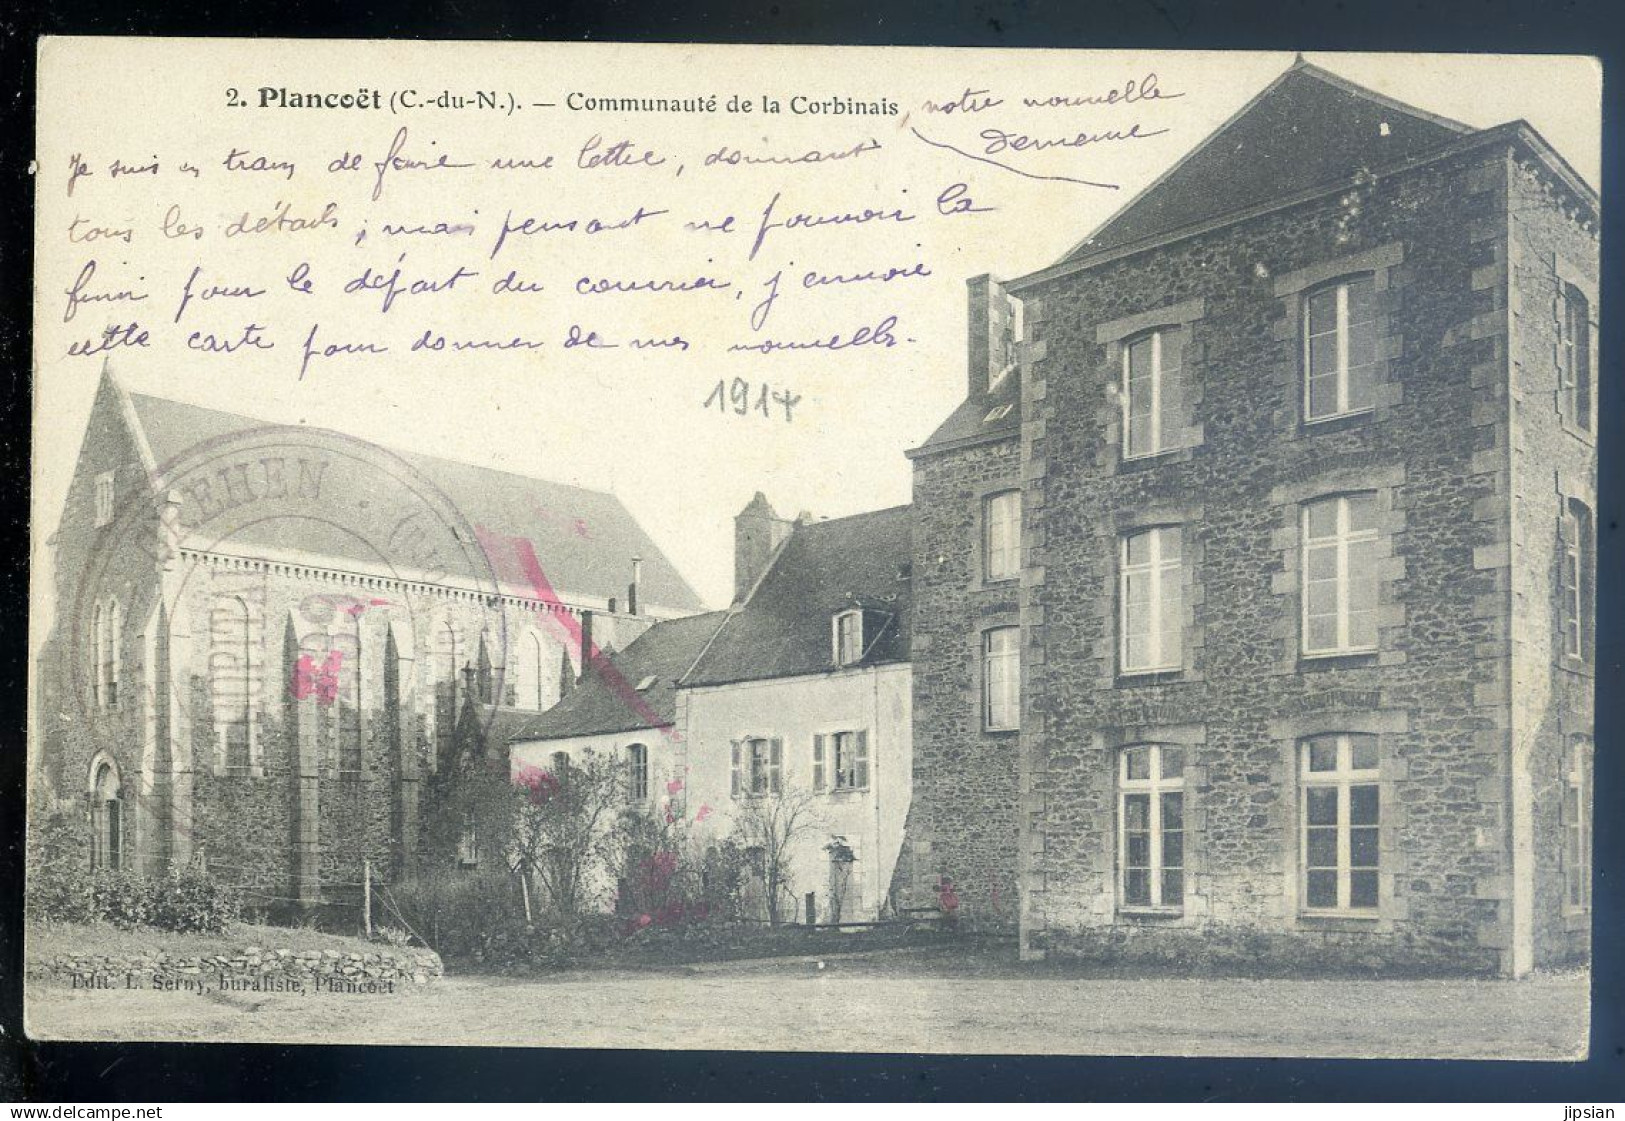 2. Plancoët (C.-du-N.). — Communauté de la Corbinais, notre nouvelle
demeure
Je suis en train de faire une lettre, donnant
tous les détails ; mais pensant ne pouvoir la
finir pour le départ du courrier, j'envoie
cette carte pour donner de mes nouvelles.
1914
CREHEN
HOPITAL
Edit. L. Serny, buraliste, Plancoët
Voir cette carte au format original
jipsian